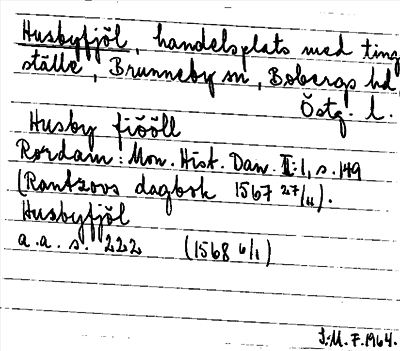 Husbyfjöl, handelsplats med ting
ställe, Brunneby sn, Bobergs hd,
Östg. l.
Husby fiööll
Rördam: Mon. Hist. Dan. II:1, s. 149
(Rantzovs dagbok 1567 27/11).
Husbyfjöl
a.a. s. 222 (1568 6/1)
J.M. F. 1964.